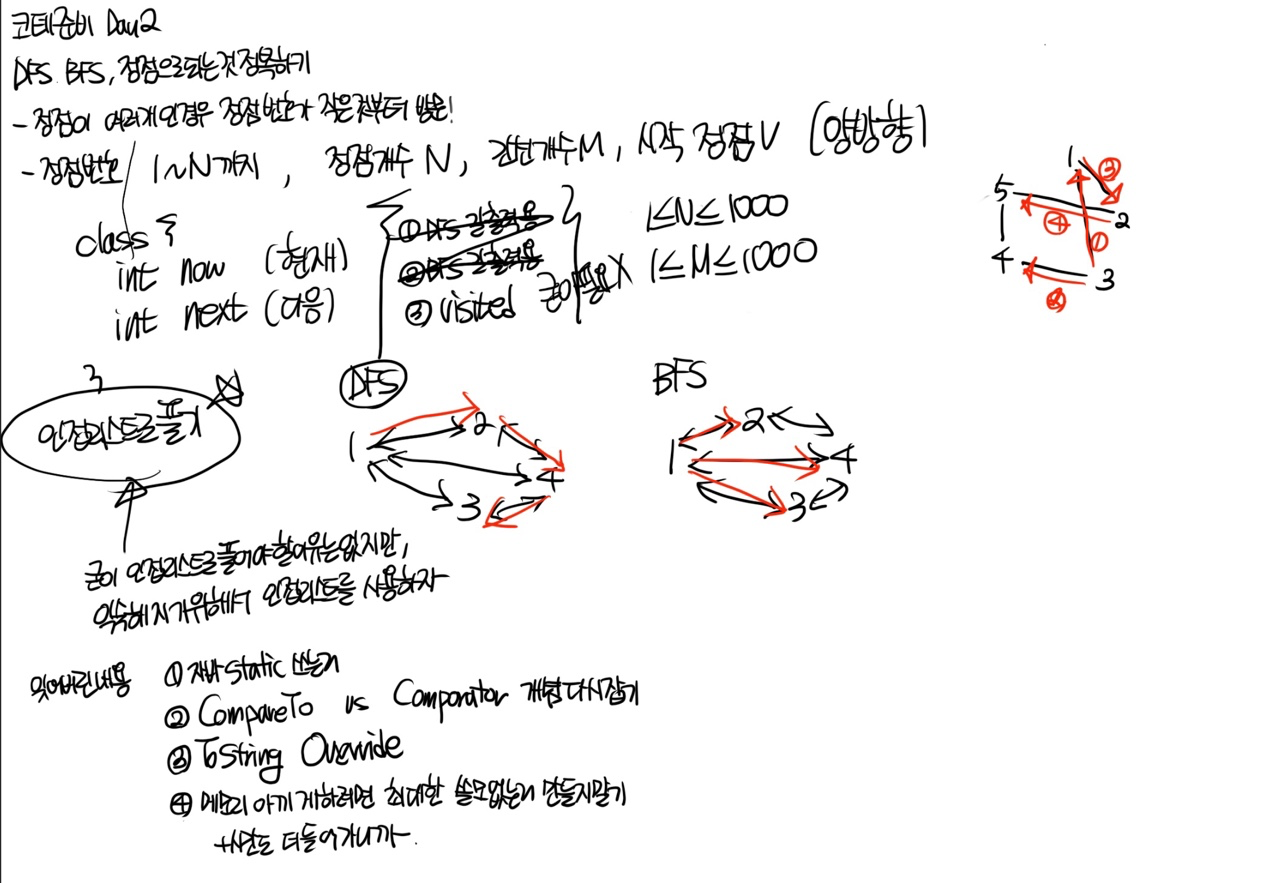 코테준비 Day2
DFS BFS, 정점으로되는것 정복하기
- 정점이 여러개인경우 정점번호가 작은것부터 방문!
- 정점번호 1~N까지, 정점개수 N, 간선개수 M, 시작 정점 V (양방향)
class {
int now (현재)
int next (다음)
① DFS 길출력용
② BFS 길출력용
③ visited 굳이필요X
1≤N≤1000
1≤M≤1000
1
5
2
4
3
①
②
③
④
3
인접리스트로 풀기
DFS
1
2
4
3
BFS
1
2
4
3
굳이 인접리스트로 풀어야 할이유는없지만,
익숙해지기위해서 인접리스트를 사용하자
잊어버린내용 ① 자바 static 쓰는거
② CompareTo vs Comparator 개념다시잡기
③ ToString Override
④ 메모리 아끼게하려면 최대한 쓸모없는거 만들지말기
+시간도 더들어가니까.